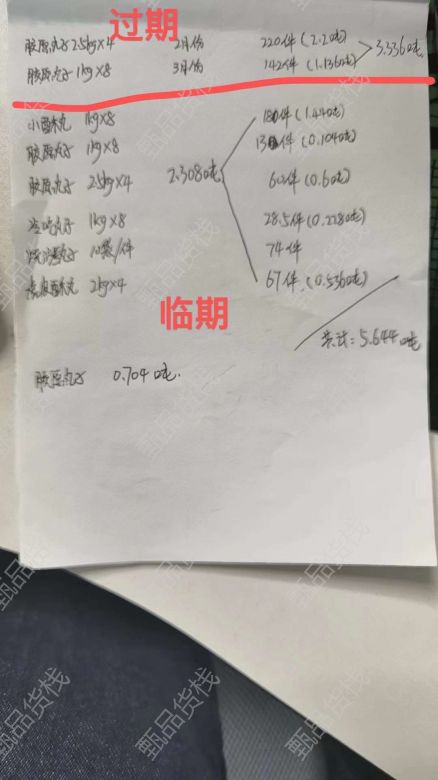 过期
胶原丸子 2.5kg×4 2月份 220件(2.2吨)
胶原丸子 1kg×8 3月份 142件(1.136吨) 3.336吨
小酥丸 1kg×8 180件(1.440吨)
胶原丸子 1kg×8 13件(0.104吨)
胶原丸子 2.5kg×4 2.3080吨 60件(0.6吨)
丸子 1kg×8 28.5件(0.2280吨)
丸子 10袋/件 74件
虎皮酥丸 2kg×4 67件(0.536吨)
临期
共计:5.644吨
胶原丸子 0.704吨.
甄品货栈